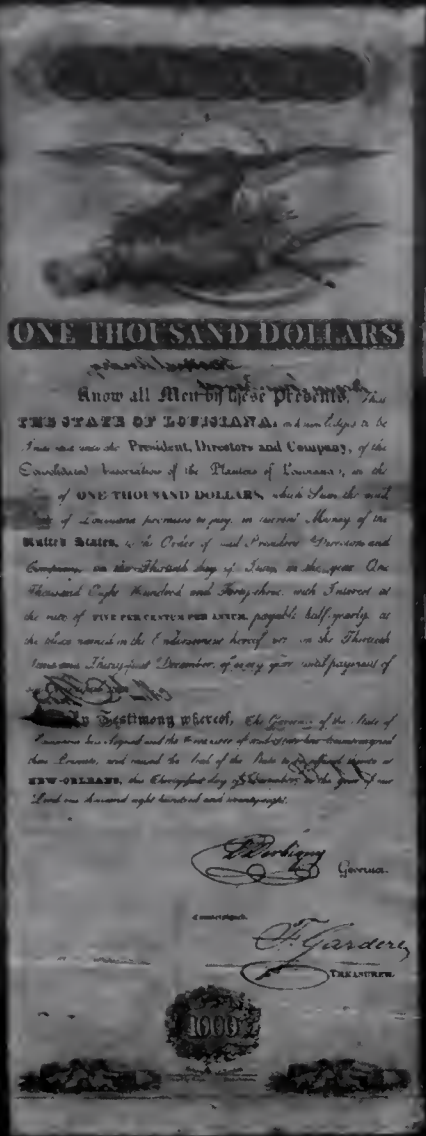 ONE THOUSAND DOLLARS
Know all Men by these Presents, That
THE STATE OF LOUISIANA, acknowledges to be
indebted unto the President, Directors and Company, of the
Consolidated Association of the Planters of Louisiana, in the
of ONE THOUSAND DOLLARS, which Sum the said
of Louisiana promises to pay, in current Money of the
United States, to the Order of said President Directors and
Company on the Thirtieth day of June, in the year One
Thousand Eight Hundred and Forty three, with Interest at
the rate of FIVE PER CENTUM PER ANNUM, payable half yearly at
the place named in the Endorsement hereof on the Thirtieth
June and Thirty first December, of every year until payment of
In Testimony whereof, The Governor of the State of
Louisiana has signed and the Treasurer of has countersigned
these Presents, and caused the Seal of the State to be affixed thereto at
NEW-ORLEANS, this day of in the year of our
Lord one thousand eight hundred and twenty eight.
Derbigny Governor.
Countersigned.
F. Gardere
TREASURER.
1000